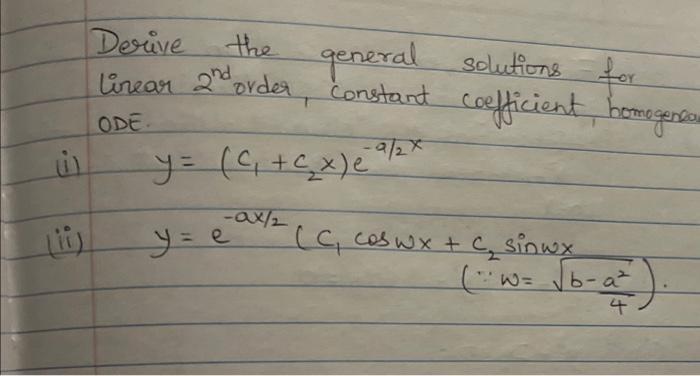 Derive the general solutions for
linear 2nd order, constant coefficient, homogenea
ODE.
(i) y = (C₁ + C₂x)e^-a/2 x
(ii) y = e^-ax/2 (C₁ cos wx + C₂ sin wx
(∵ w = √(b - a²/4)).